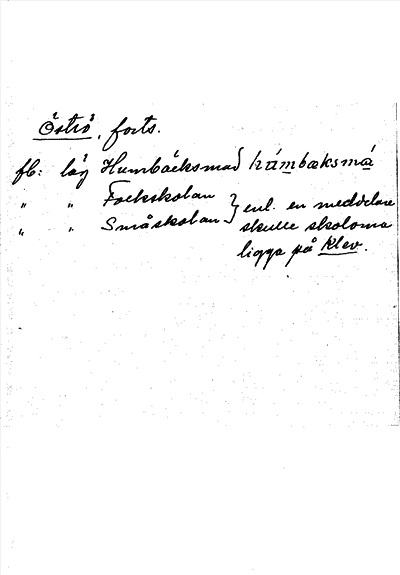 Öströ, forts.
fb: låg Humbäcksmad húmbæksmá
" " Folkskolan } enl. en meddelare
" " Småskolan } skulle skolorna
ligga på Klev.